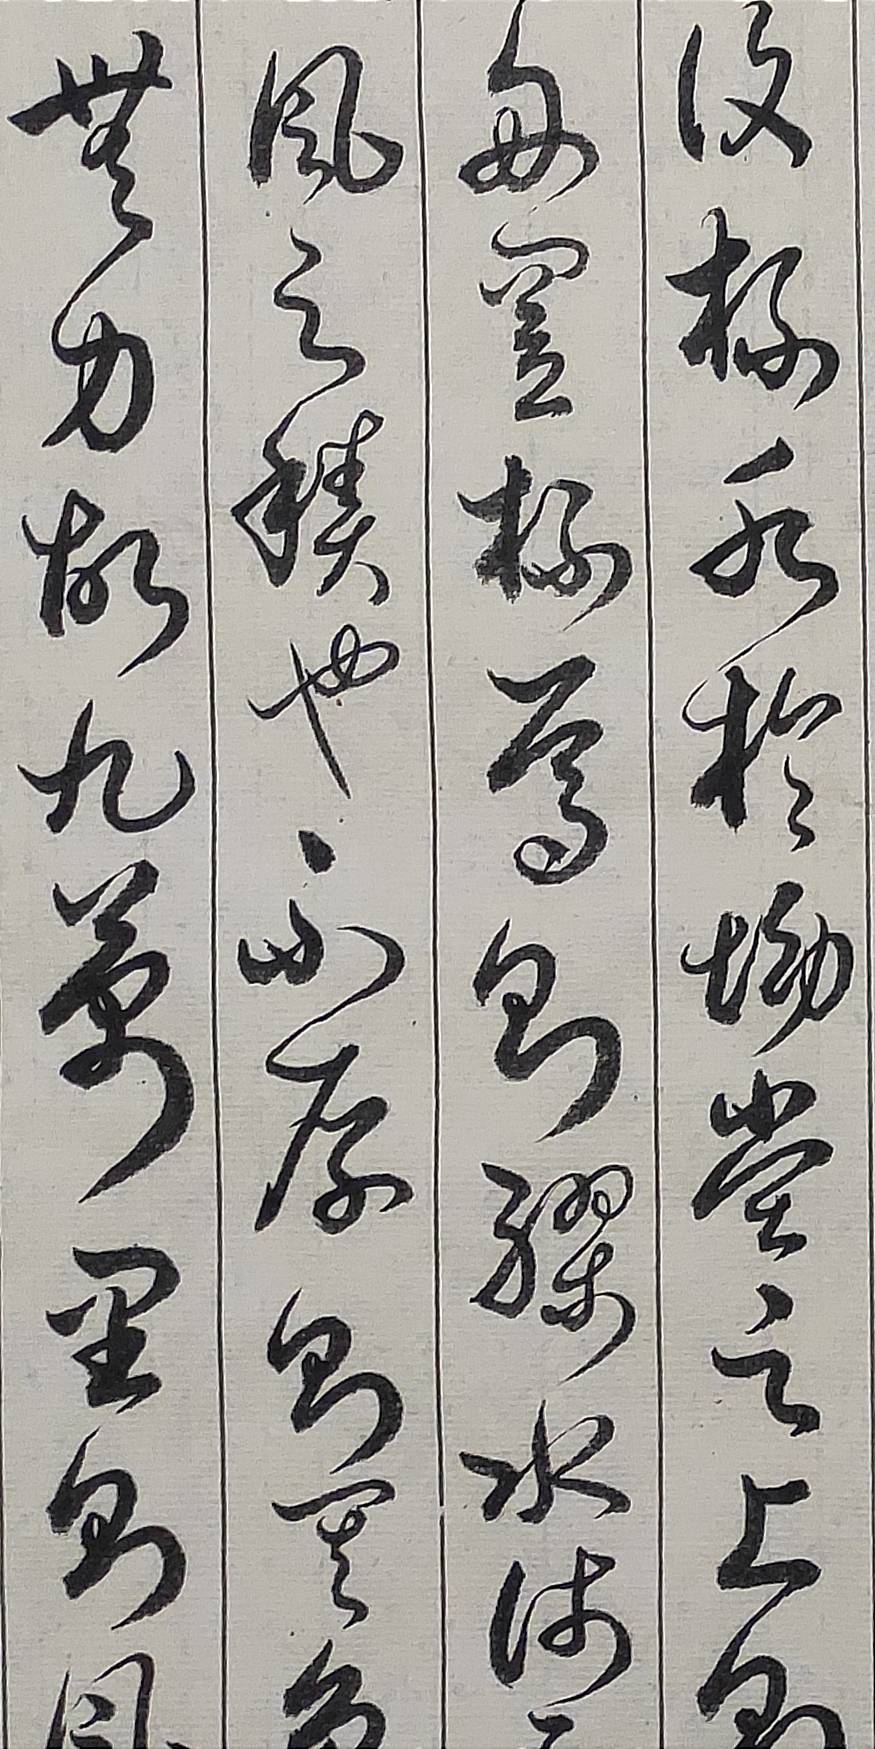 覆杯水於坳堂之上則
舟置杯焉則膠水淺而
風之積也不厚則其負
無力故九萬里則風